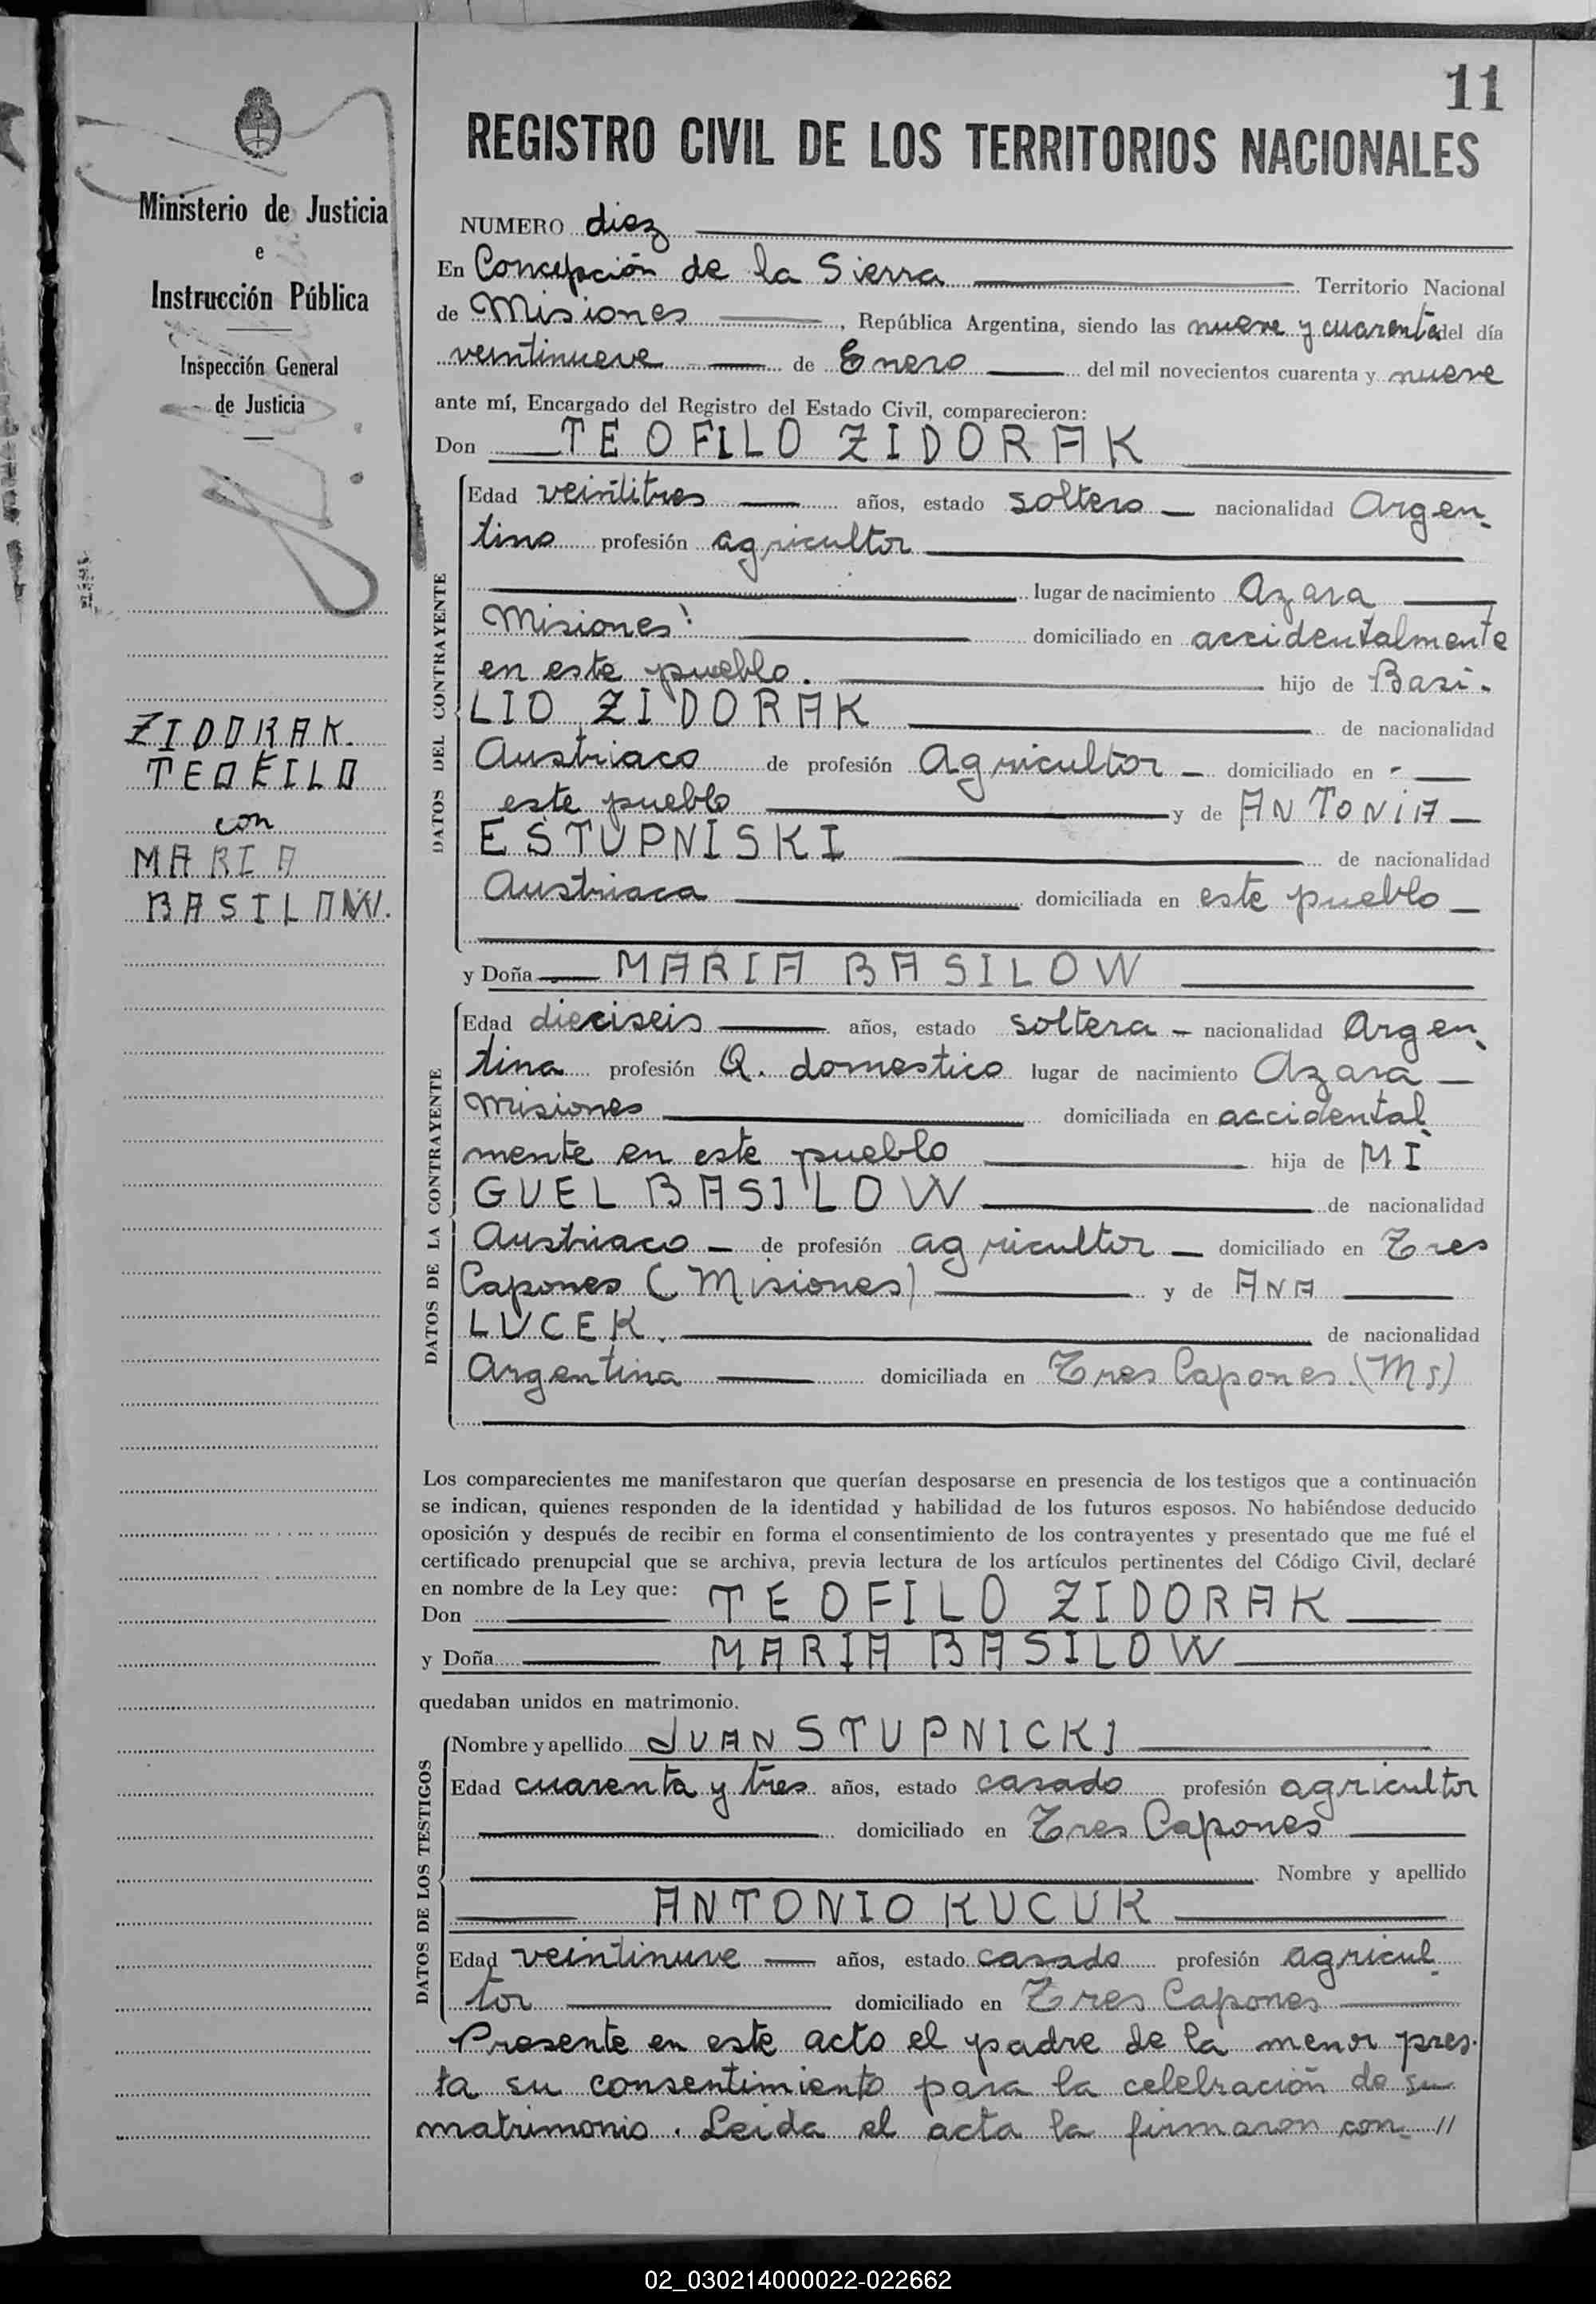 11
REGISTRO CIVIL DE LOS TERRITORIOS NACIONALES
Ministerio de Justicia
e
Instrucción Pública
Inspección General
de Justicia
ZIDORAK
TEOFILO
con
MARIA
BASILOW.
NUMERO diez
En Concepción de la Sierra Territorio Nacional
de Misiones, República Argentina, siendo las nueve y cuarenta del día
veintinueve de Enero del mil novecientos cuarenta y nueve
ante mí, Encargado del Registro del Estado Civil, comparecieron:
Don TEOFILO ZIDORAK
DATOS DEL CONTRAYENTE
Edad veintitres años, estado soltero nacionalidad Argen-
tino profesión agricultor
lugar de nacimiento Azara
Misiones domiciliado en accidentalmente
en este pueblo. hijo de Basi-
LIO ZIDORAK de nacionalidad
Austriaco de profesión Agricultor domiciliado en
este pueblo y de ANTONIA
ESTUPNISKI de nacionalidad
Austriaca domiciliada en este pueblo
y Doña MARIA BASILOW
DATOS DE LA CONTRAYENTE
Edad dieciseis años, estado soltera nacionalidad Argen-
tina profesión Q. domestico lugar de nacimiento Azara
Misiones domiciliada en accidental-
mente en este pueblo hija de MI
GUEL BASILOW de nacionalidad
Austriaco de profesión agricultor domiciliado en Tres
Capones (Misiones) y de ANA
LUCEK. de nacionalidad
Argentina domiciliada en Tres Capones (Ms)
Los comparecientes me manifestaron que querían desposarse en presencia de los testigos que a continuación
se indican, quienes responden de la identidad y habilidad de los futuros esposos. No habiéndose deducido
oposición y después de recibir en forma el consentimiento de los contrayentes y presentado que me fué el
certificado prenupcial que se archiva, previa lectura de los artículos pertinentes del Código Civil, declaré
en nombre de la Ley que:
Don TEOFILO ZIDORAK
y Doña MARIA BASILOW
quedaban unidos en matrimonio.
DATOS DE LOS TESTIGOS
Nombre y apellido JUAN STUPNICKI
Edad cuarenta y tres años, estado casado profesión agricultor
domiciliado en Tres Capones
Nombre y apellido
ANTONIO KUCUK
Edad veintinuve años, estado casado profesión agricul-
tor domiciliado en Tres Capones
Presente en este acto el padre de la menor pres-
ta su consentimiento para la celebración de su
matrimonio. Leida el acta la firmaron con- //
02_030214000022-022662